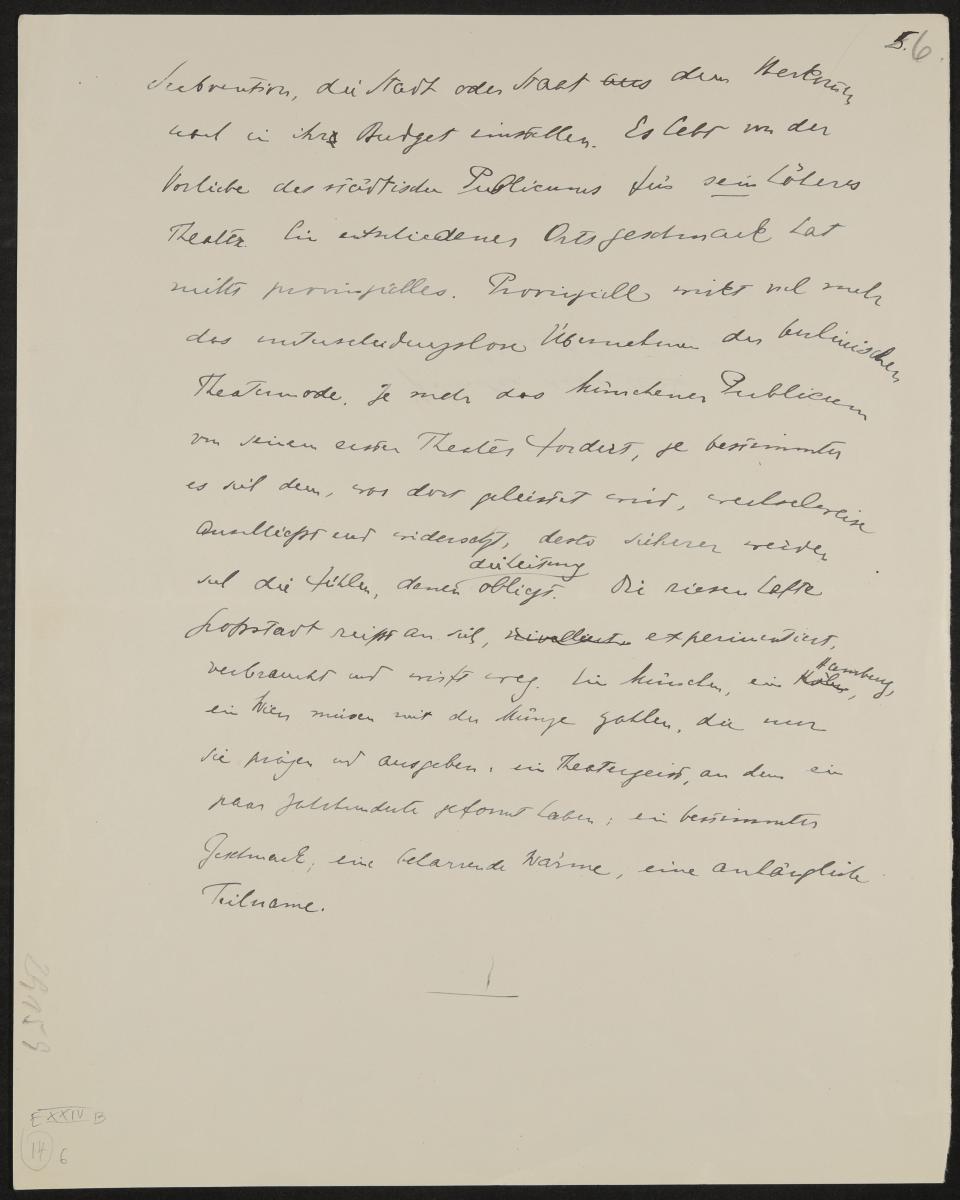 5. 6.
Subvention, die Stadt oder Staat aus dem Herkommen
nach in ihr Budget einstellen. Es lebt von der
Vorliebe des städtischen Publicums für sein höheres
Theater. Ein entschiedener Ortsgeschmack hat
nichts provinzielles. Provinziell wirkt viel mehr
das unterscheidungslose Übernehmen der berlinischen
Theatermode. Je mehr das Münchener Publicum
von seinem ersten Theater fordert, je bestimmter
es sich dem, was dort geleistet wird, wechselweise
anschließt und widersetzt, desto sicherer werden
die Leitung
sich die fühlen, denen obliegt. Die riesenhafte
Grosstadt reißt an sich, nivelliert experimentiert,
Hamburg,
verbraucht und wirft weg. Ein München, ein Köln,
ein Wien müssen mit der Münze zahlen, die nur
sie prägen und ausgeben: ein Theatergeist, an dem ein
paar Jahrhunderte geformt haben; ein bestimmter
Geschmack; eine beharrende Wärme, eine anhängliche
Teilname.
29159
E XXIV B
14 6